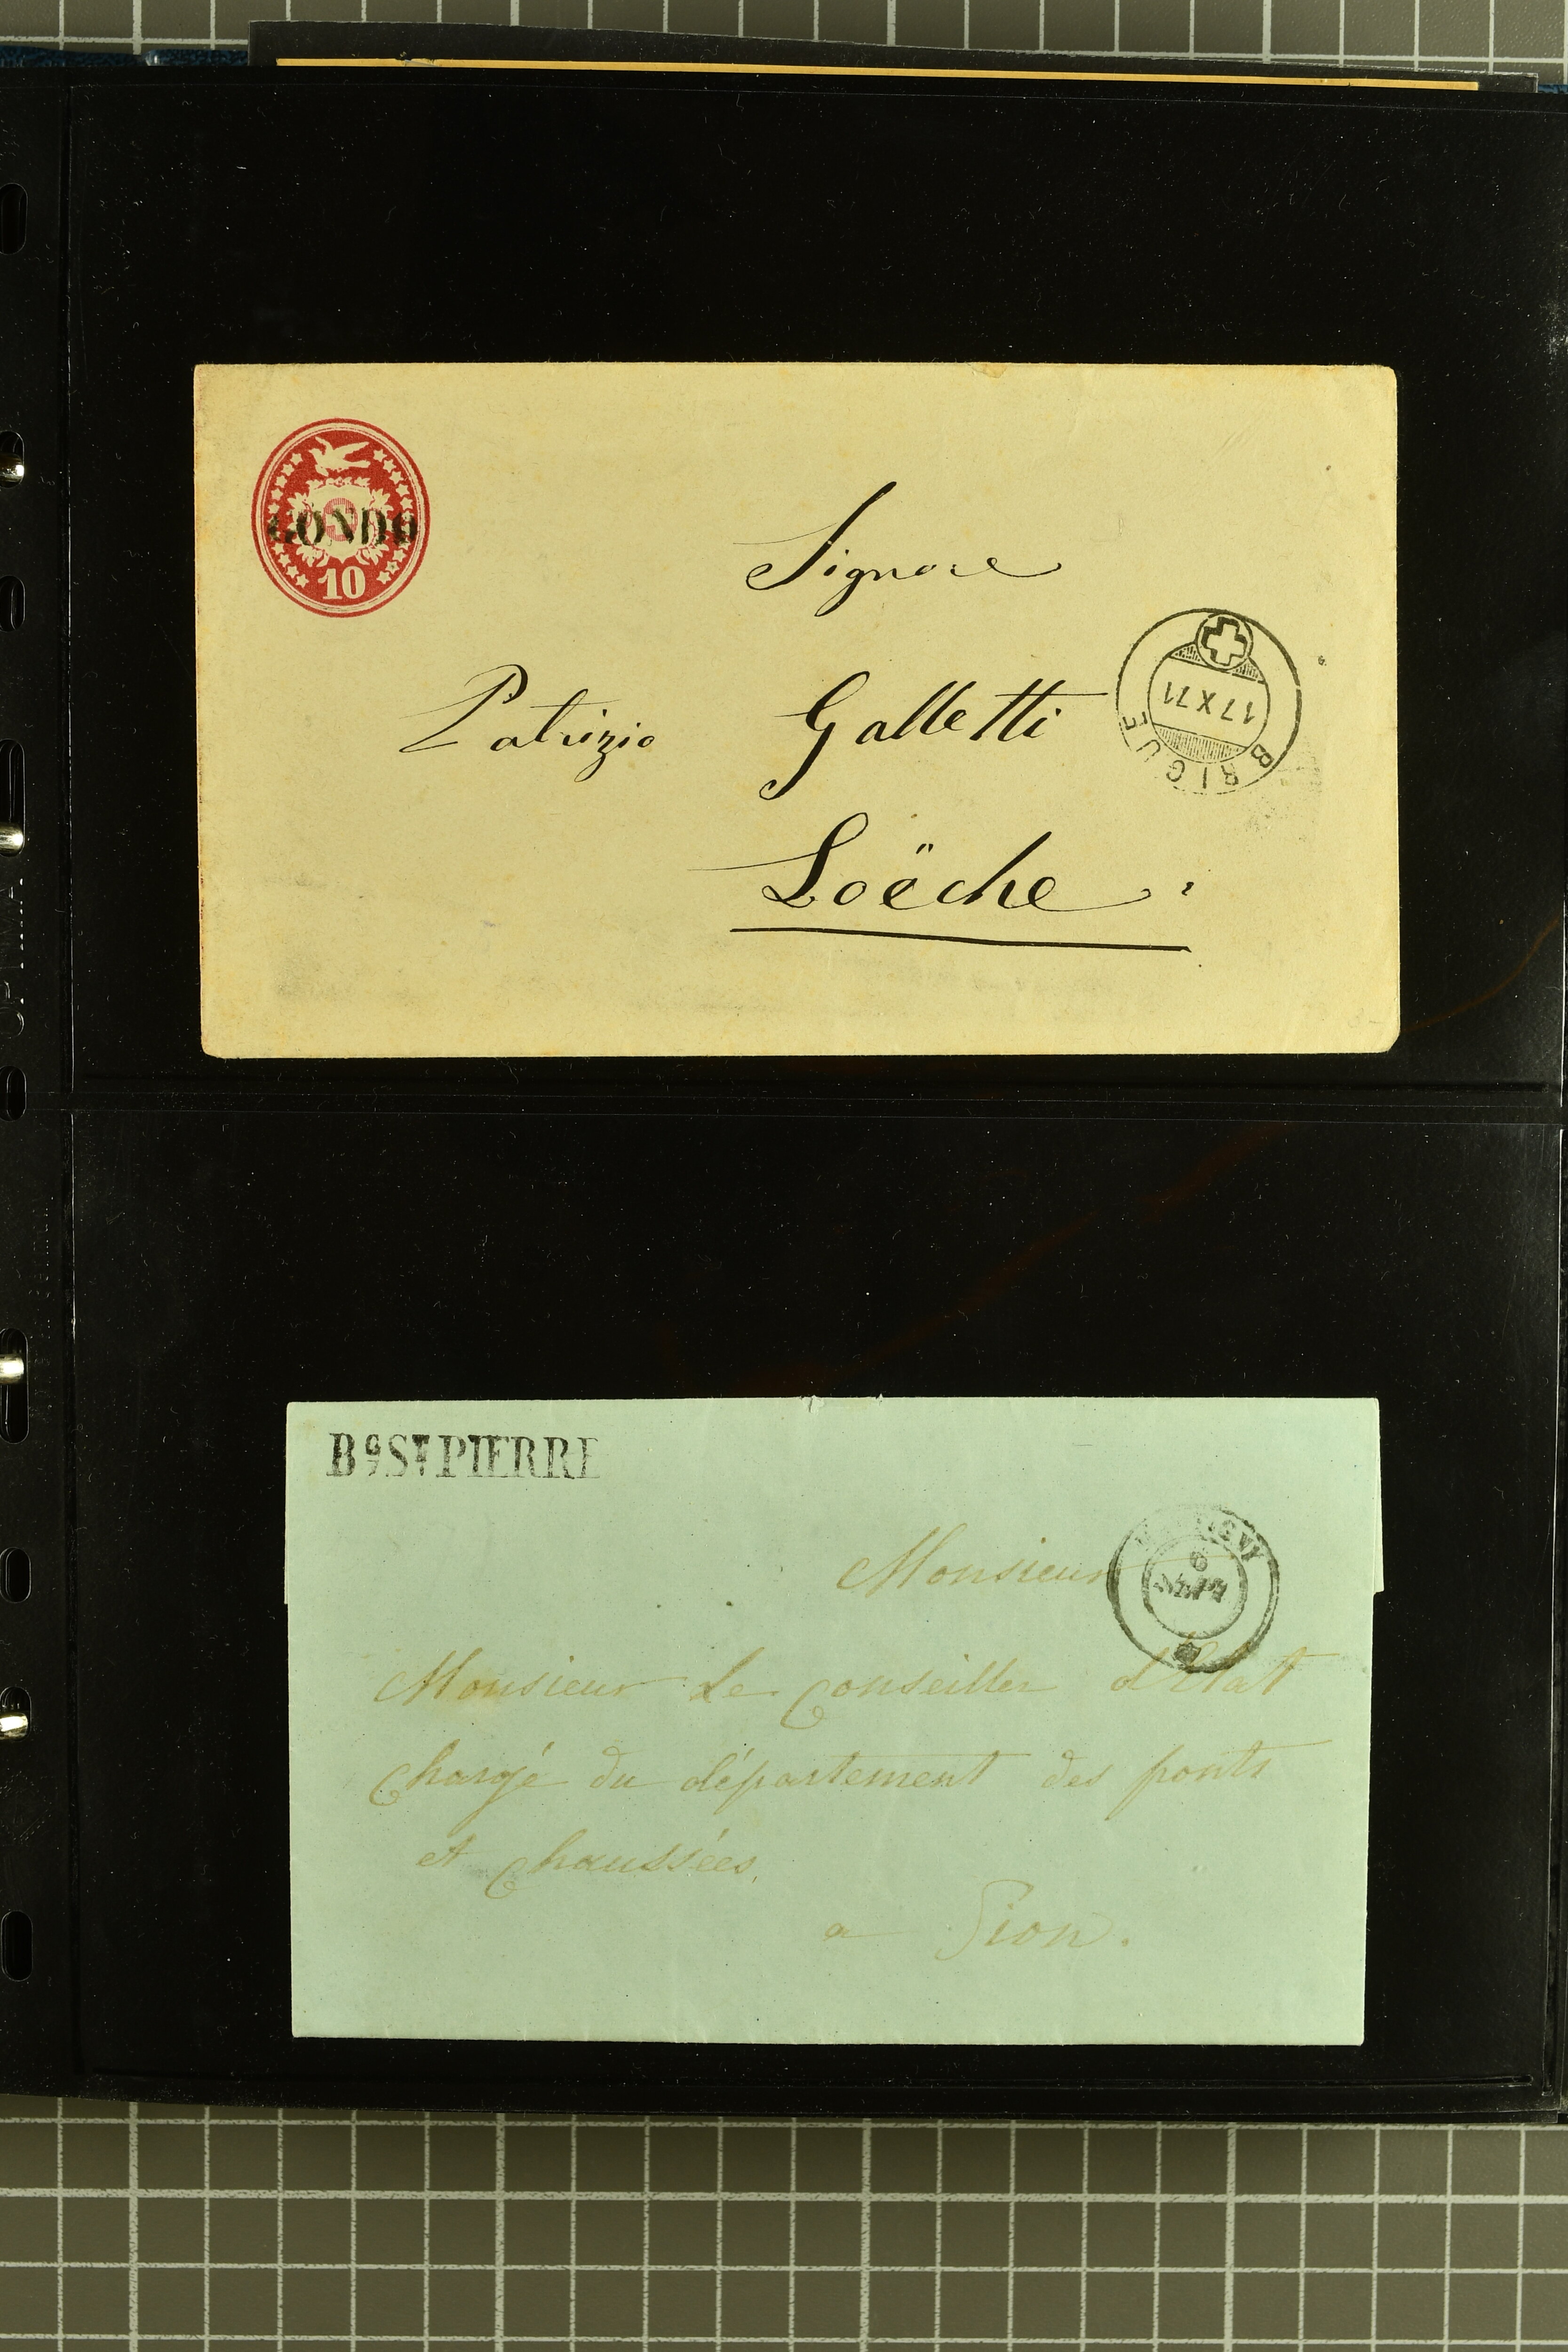 GONDO
10
Signore
Patrizio Galletti
Loëche
BRIGUE
17 X 71
Bg St PIERRE
Monsieur
6
SEPT
Monsieur Le Conseiller d'Etat
Chargé du département des ponts
et Chaussées,
a Sion.